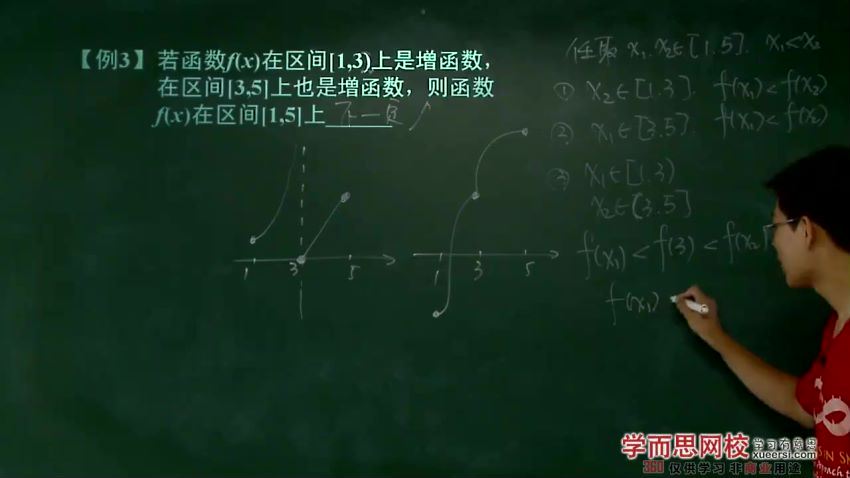 【例3】若函数f(x)在区间[1,3)上是增函数，
在区间[3,5]上也是增函数，则函数
f(x)在区间[1,5]上 不一定 ↗
任取 x₁.x₂∈[1.5]. x₁<x₂
① x₂∈[1.3]. f(x₁)<f(x₂)
② x₁∈[3.5]. f(x₁)<f(x₂)
③ x₁∈[1.3)
x₂∈(3.5]
f(x₁)<f(3)<f(x₂)
f(x₁)
1 3 5
1 3 5
学而思网校 学习有意思
xueersi.com
360 仅供学习 非商业用途